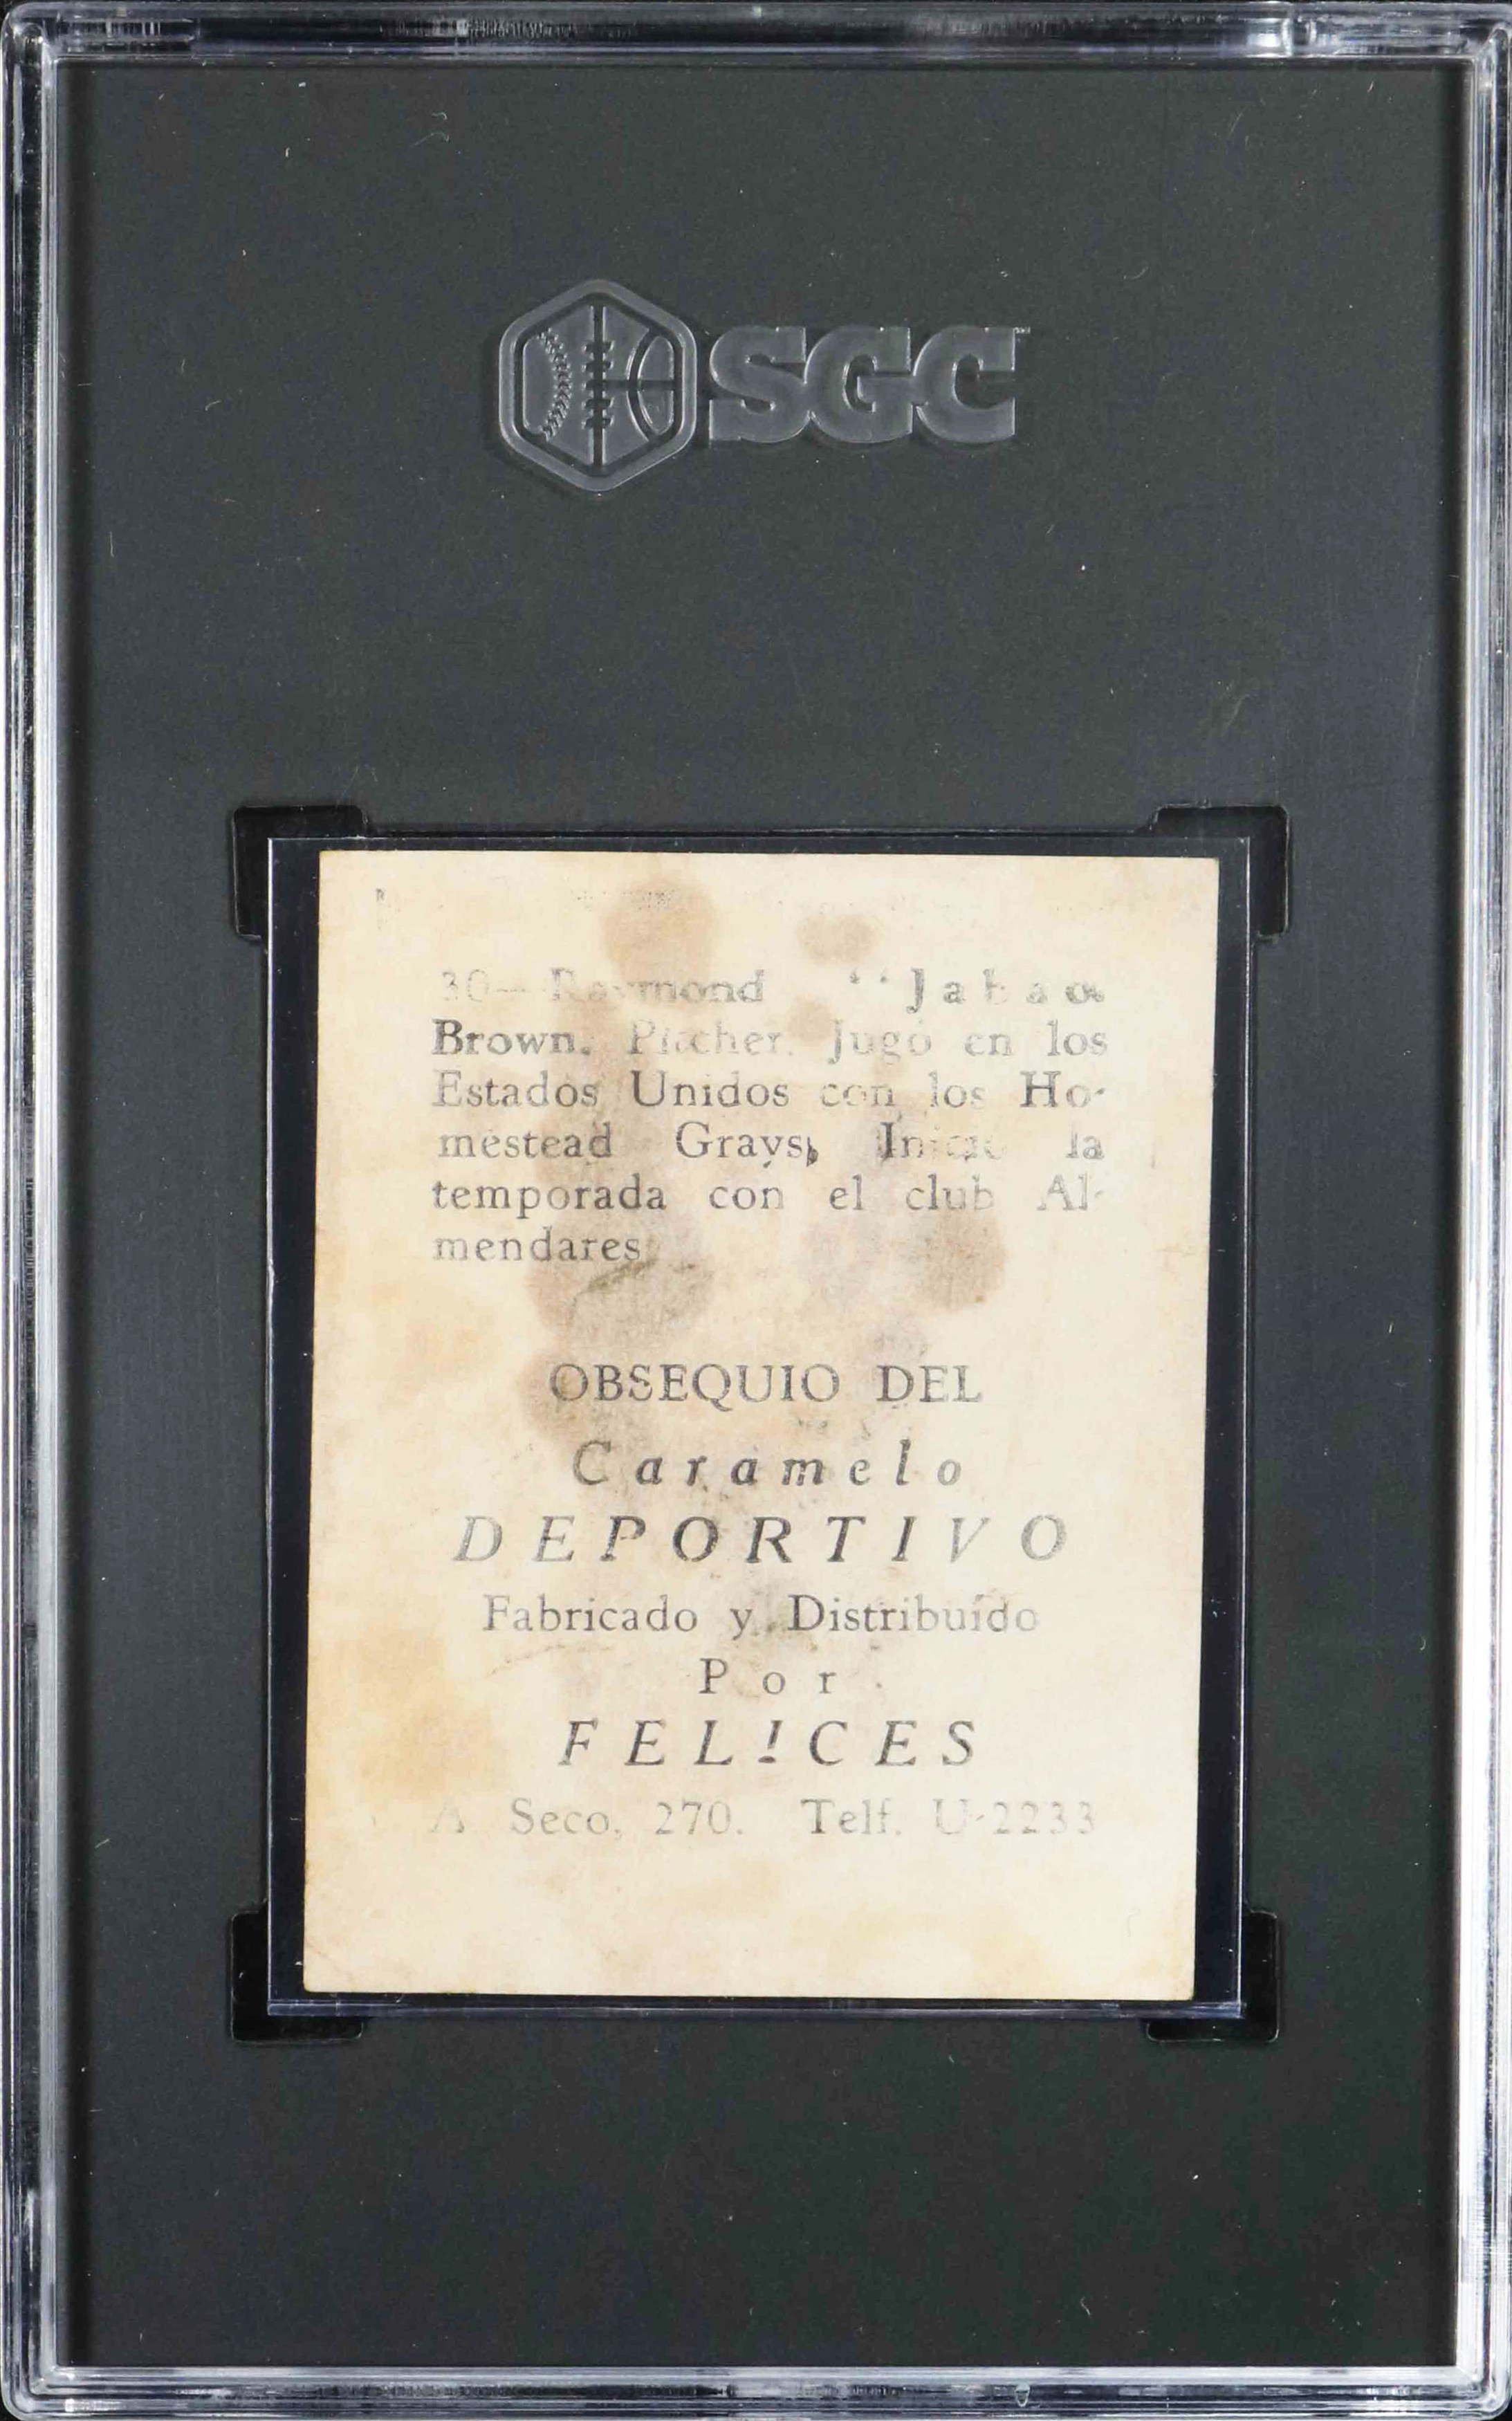 SGC
30—Raymond "Jabao
Brown. Pitcher. Jugó en los
Estados Unidos con los Ho-
mestead Grays, Inició la
temporada con el club Al-
mendares.
OBSEQUIO DEL
Caramelo
DEPORTIVO
Fabricado y Distribuído
Por
FELICES
A Seco, 270. Telf. U-2233